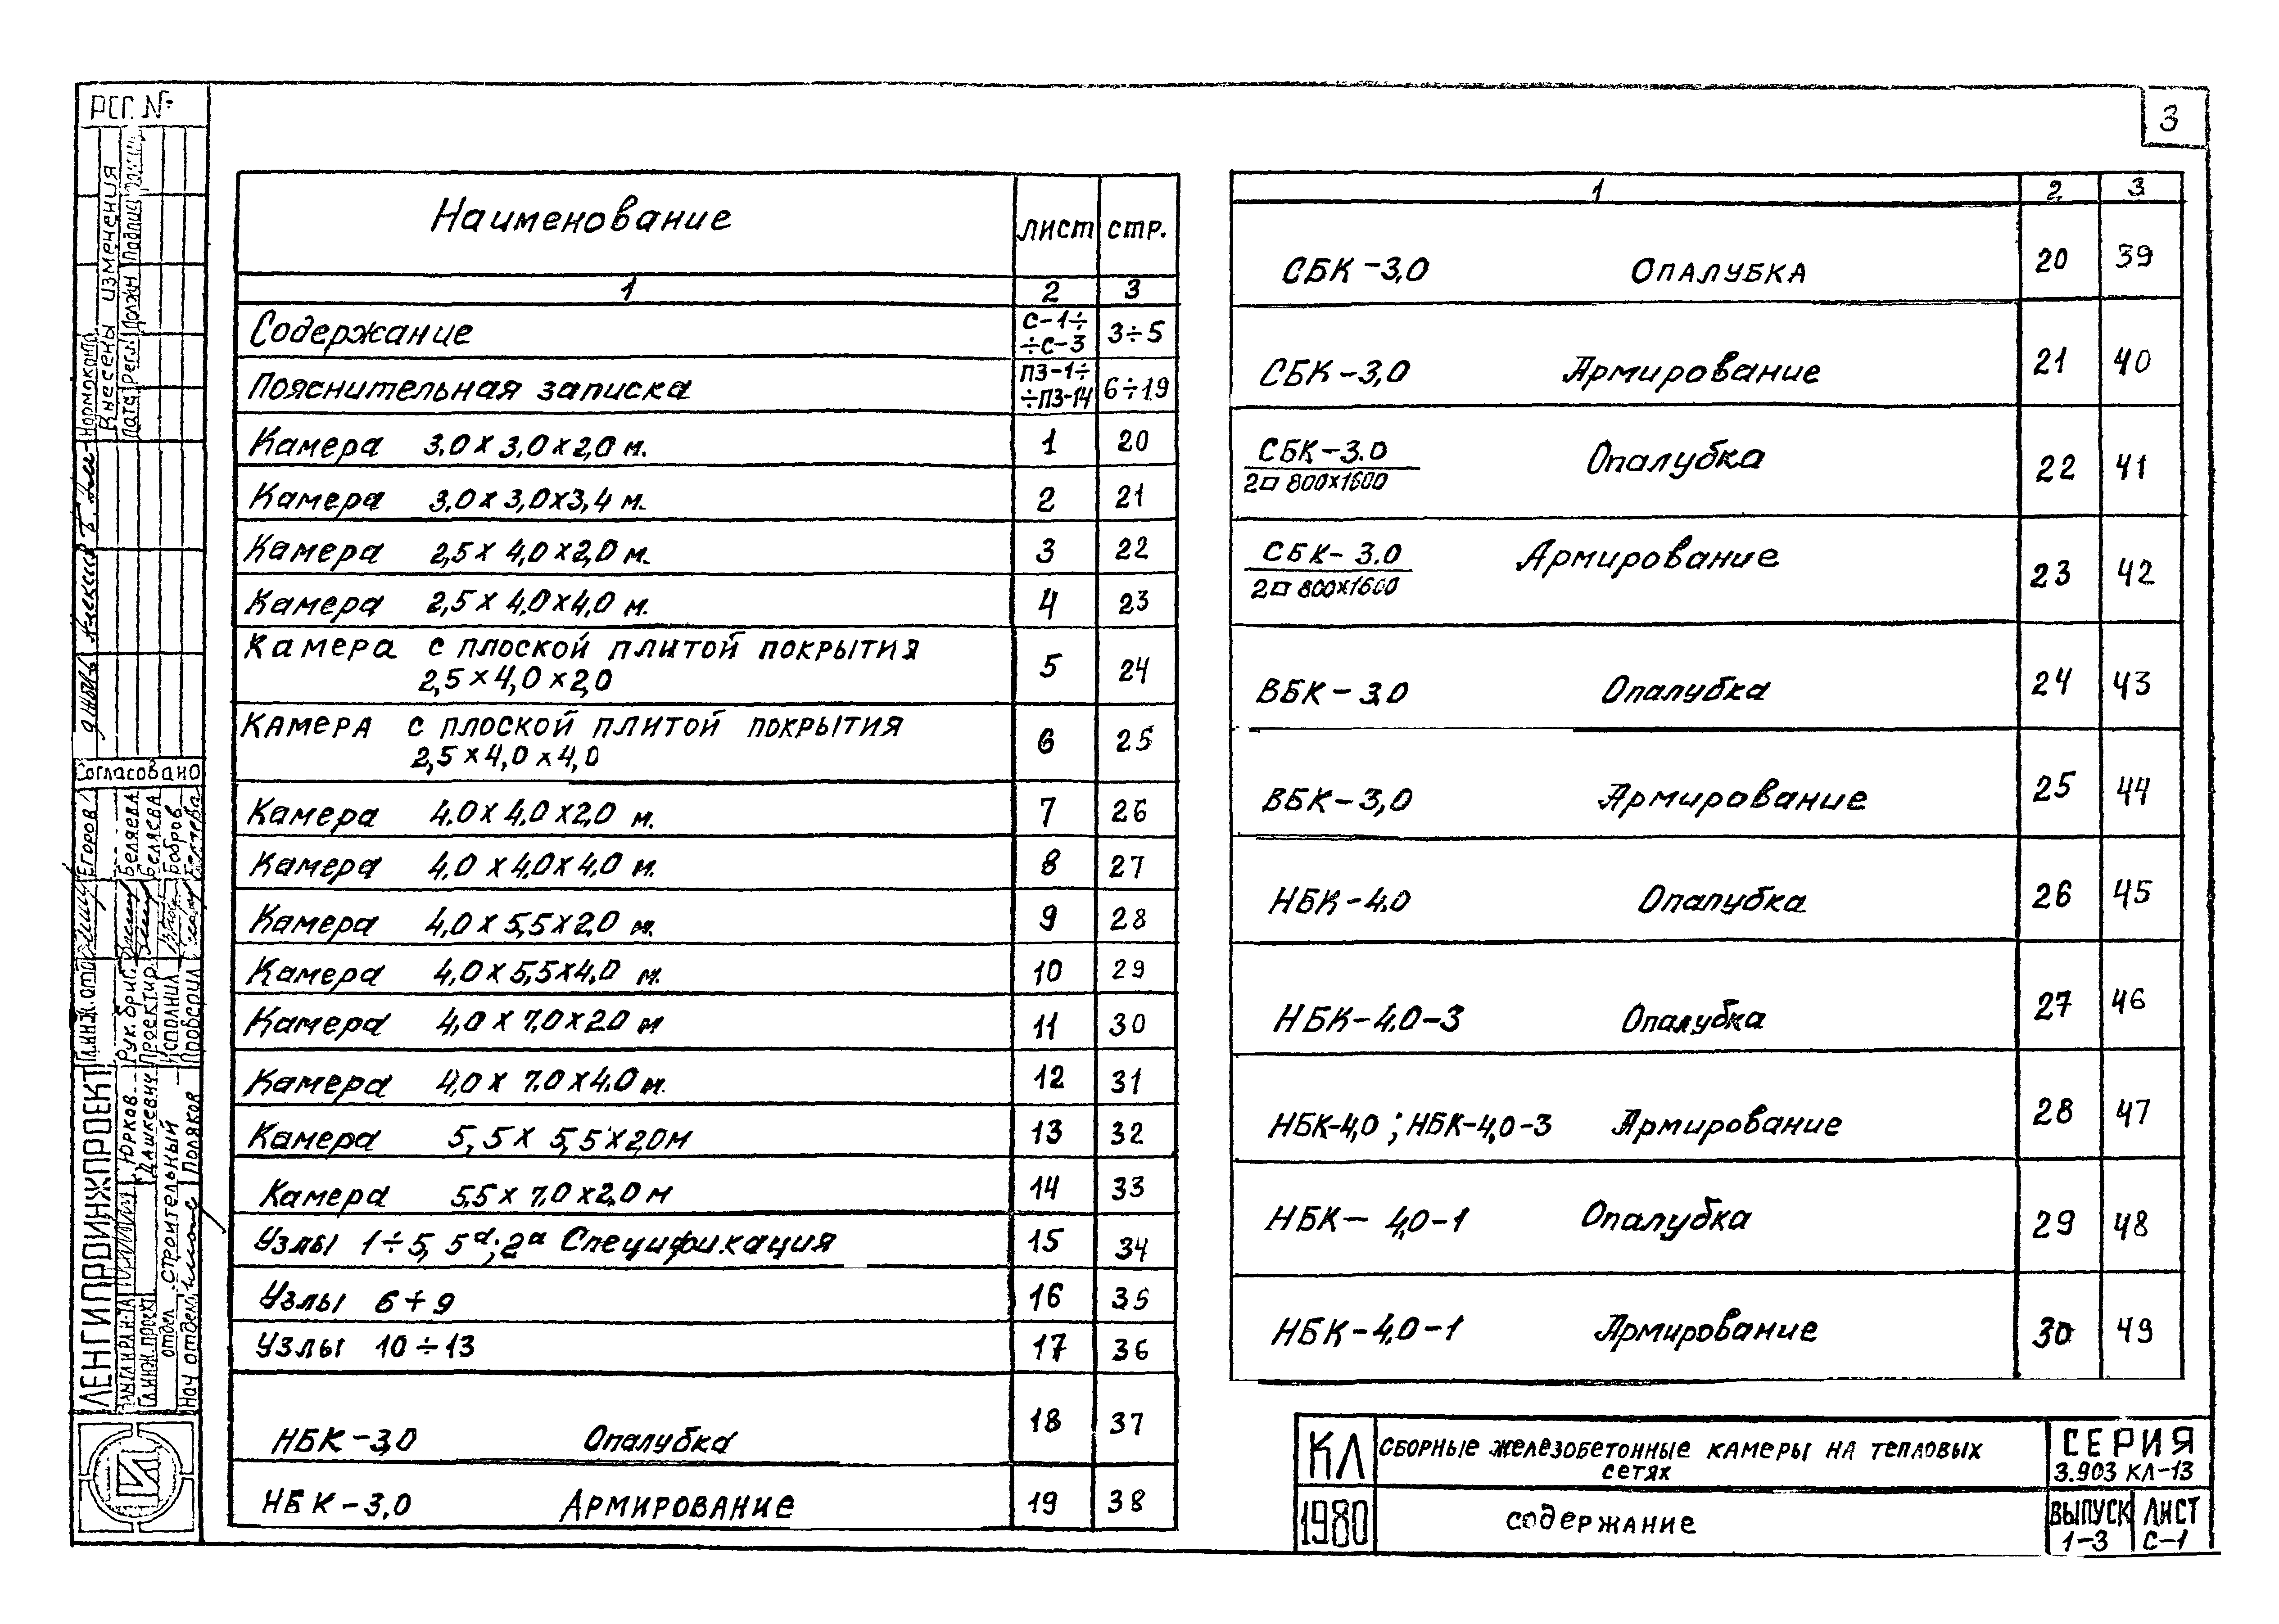 3
РЕГ. №
Внесены изменения
Дата
Рег.№
Должн
Подпись
Нормоконтр.
Согласовано
Егоров
Беляева
Беляева
Бобров
Рук. бриг.
Проектир.
Исполнил
Проверил
ЛЕНГИПРОИНЖПРОЕКТ
Юрков
Дашкевич
Поляков
отдел строительный
Нач отдела
Гл.инж.проект
Наименование
лист
стр.
1
2
3
Содержание С-1÷ ÷С-3 3÷5
Пояснительная записка ПЗ-1÷ ÷ПЗ-14 6÷19
Камера 3.0х3,0х2,0 м. 1 20
Камера 3,0х3,0х3,4 м. 2 21
Камера 2,5х4,0х2,0 м. 3 22
Камера 2,5х4,0х4,0 м. 4 23
Камера с плоской плитой покрытия
2,5х4,0х2,0 5 24
Камера с плоской плитой покрытия
2,5х4,0х4,0 6 25
Камера 4.0х4,0х2,0 м. 7 26
Камера 4,0х4,0х4,0 м. 8 27
Камера 4,0х5,5х2.0 м. 9 28
Камера 4,0х5,5х4,0 м. 10 29
Камера 4,0х7,0х2.0 м 11 30
Камера 4,0х7.0х4.0 м. 12 31
Камера 5,5х5,5х2,0м 13 32
Камера 5,5х7,0х2,0м 14 33
Узлы 1÷5, 5а; 2а Спецификация 15 34
Узлы 6÷9 16 35
Узлы 10÷13 17 36
НБК-3,0 Опалубка 18 37
НБК-3,0 Армирование 19 38
1
2
3
СБК-3,0 Опалубка 20 39
СБК-3,0 Армирование 21 40
СБК-3.0 Опалубка 22 41
2□ 800х1600
СБК-3.0 Армирование 23 42
2□ 800х1600
ВБК-3,0 Опалубка 24 43
ВБК-3,0 Армирование 25 44
НБК-4.0 Опалубка 26 45
НБК-4.0-3 Опалубка 27 46
НБК-4,0; НБК-4,0-3 Армирование 28 47
НБК-4,0-1 Опалубка 29 48
НБК-4,0-1 Армирование 30 49
КЛ
1980
Сборные железобетонные камеры на тепловых
сетях
содержание
СЕРИЯ
3.903 КЛ-13
ВЫПУСК
1-3
ЛИСТ
С-1